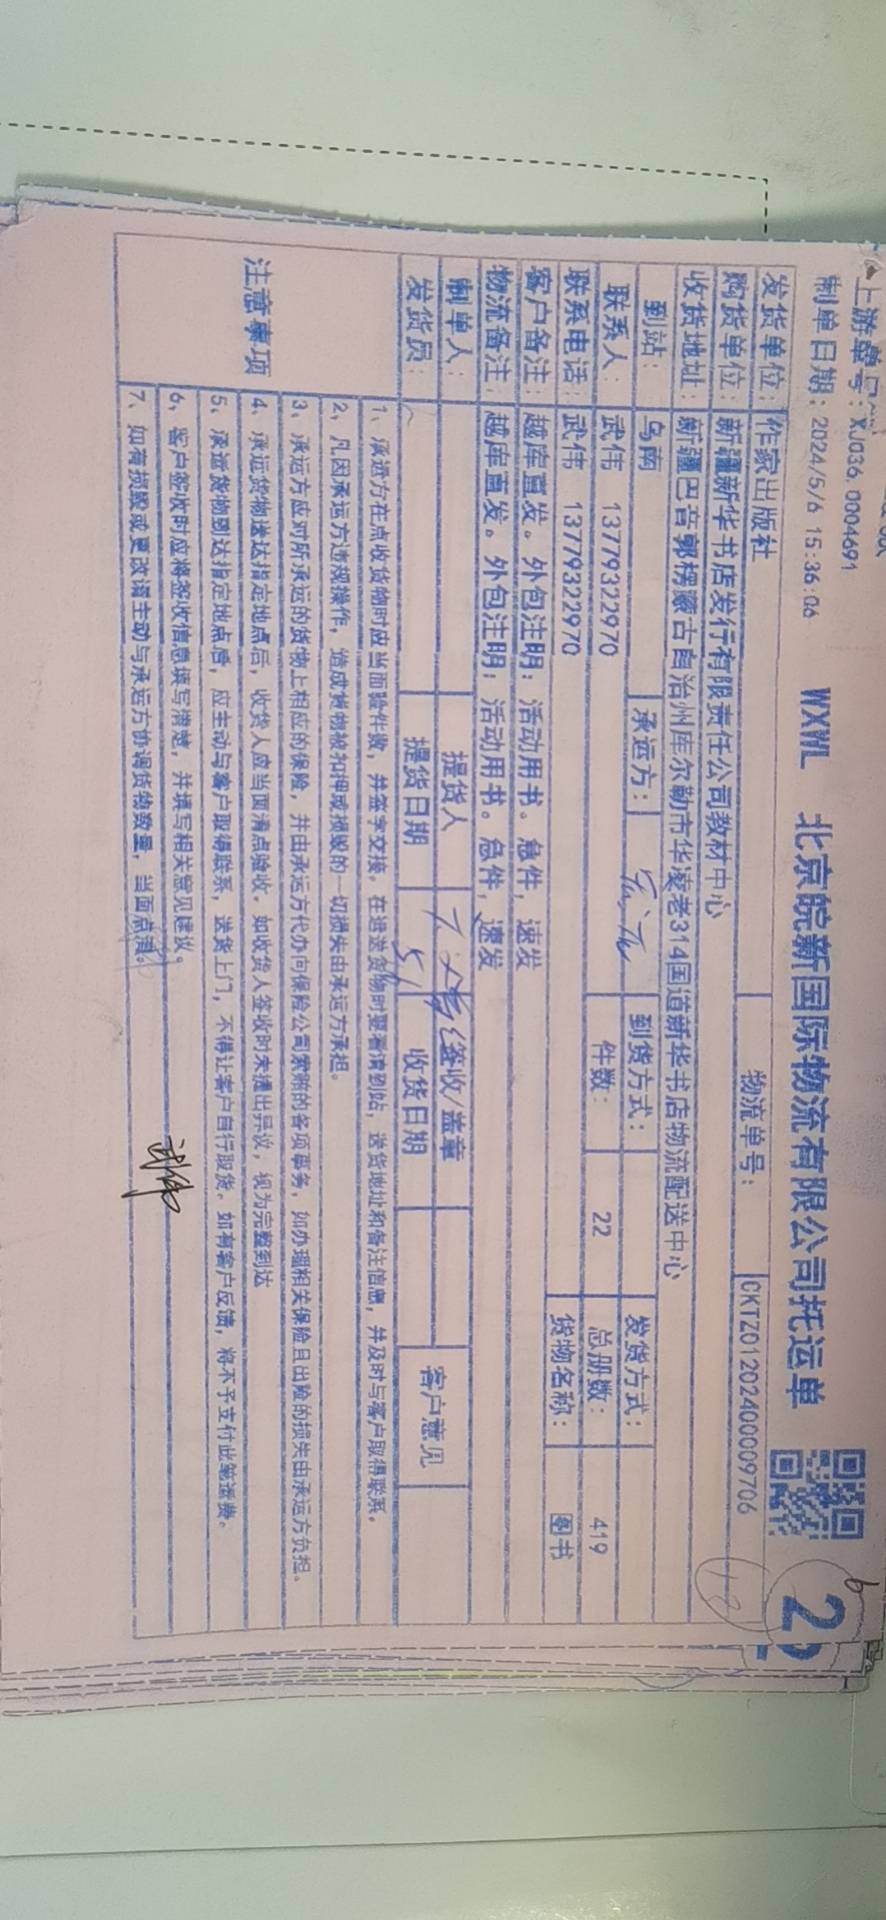 上游单号：XJ036.0004691
制单日期：2024/5/6 15:36:06 WXWL 北京皖新国际物流有限公司托运单
发货单位：作家出版社 物流单号： CKTZ01202400009706
购货单位：新疆新华书店发行有限责任公司教材中心
收货地址：新疆巴音郭楞蒙古自治州库尔勒市华凌老314国道新华书店物流配送中心
到站：乌南 承运方： 到货方式： 发货方式：
联系人：武伟 13779322970 件数： 22 总册数： 419
联系电话：武伟 13779322970 货物名称： 图书
客户备注：越库直发。外包注明：活动用书。急件，速发
物流备注：越库直发。外包注明：活动用书。急件，速发
制单人： 提货人 签收/盖章 客户意见
发货员： 提货日期 收货日期
注意事项
1、承运方在点收货物时应当面验件数，并签字交接。在运送货物时要看清到站，送货地址和备注信息，并及时与客户取得联系。
2、凡因承运方违规操作，造成货物被扣押或损毁的一切损失由承运方承担。
3、承运方应对所承运的货物上相应的保险，并由承运方代办向保险公司索赔的各项事务，如办理相关保险且出险的损失由承运方负担。
4、承运货物送达指定地点后，收货人应当面清点验收。如收货人签收时未提出异议，视为完整到达
5、承运货物到达指定地点后，应主动与客户取得联系，送货上门，不得让客户自行取货。如有客户反馈，将不予支付此笔运费。
6、客户签收时应将签收信息填写清楚，并填写相关意见建议。
7、如有损毁或更改请主动与承运方协调货物数量，当面点清。
武伟